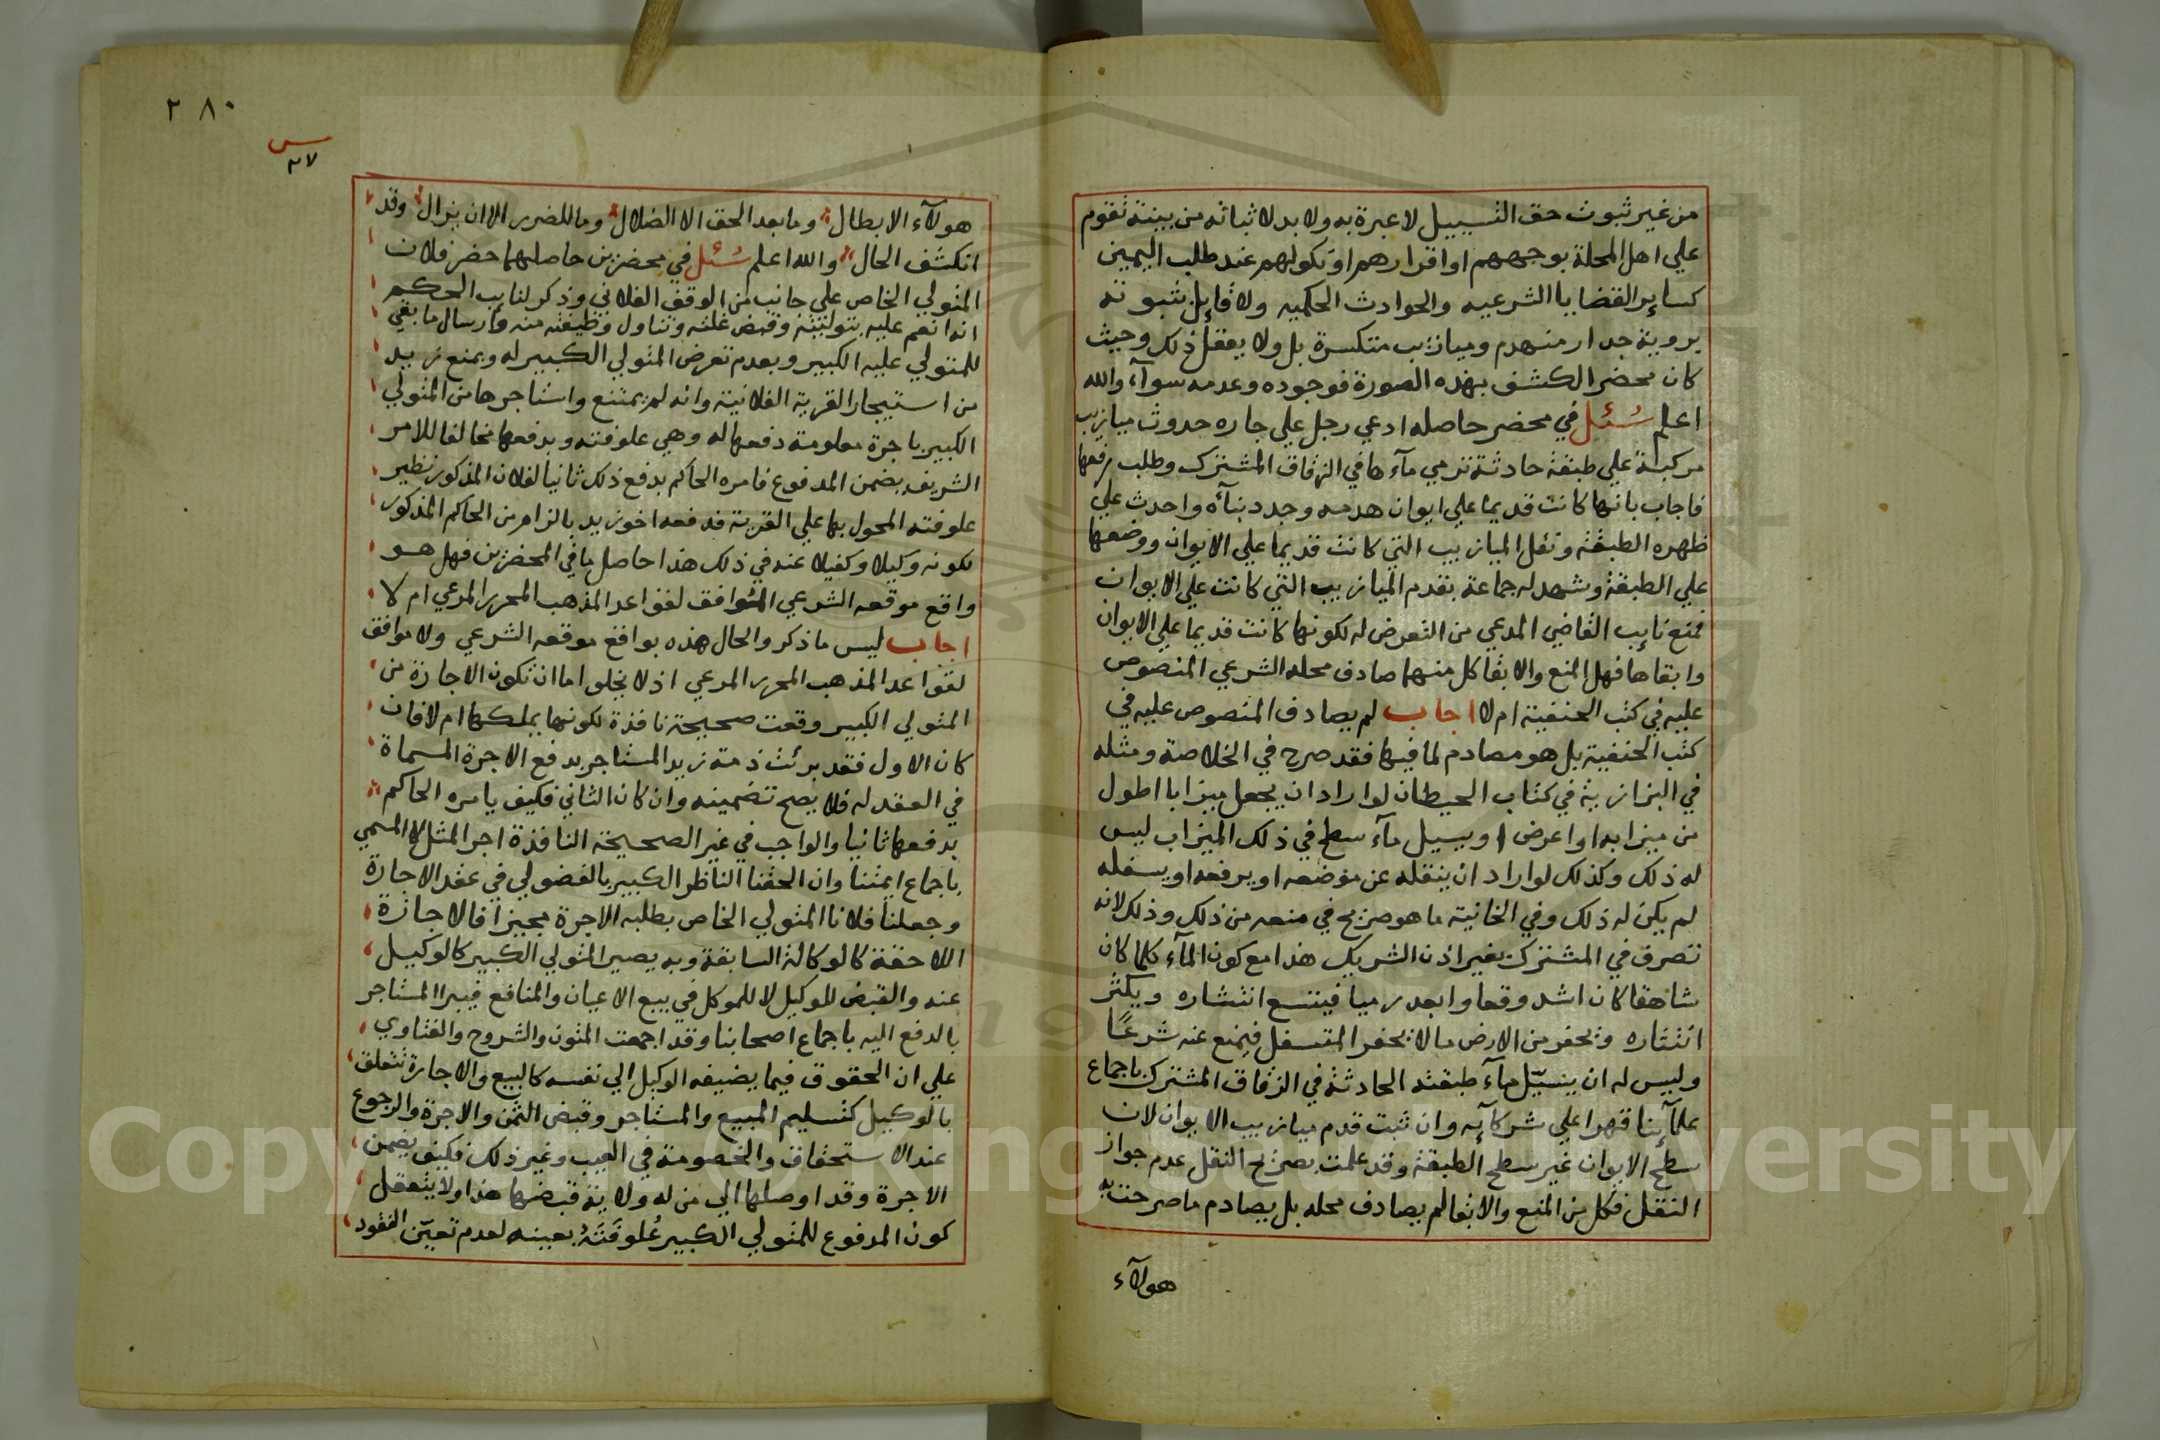 من غير ثبوت حق التسييل لا عبرة به ولا بد لاثباته من بينة تقوم
علي اهل المحلة بوجههم او اقرارهم او نكولهم عند طلب اليمين
كساير القضايا الشرعيه والحوادث الحكميه ولا قايل بثبوته
بروية جدار منهدم وميازيب متكسرة بل ولا يعقل ذلك وحيث
كان محضر الكشف بهذه الصورة فوجوده وعدمه سوآء والله
اعلم سُئل في محضر حاصله ادعي رجل علي جاره حدوث ميازيب
مركبة علي طبقة حادثة ترمي مآءها في الزقاق المشترك وطلب رفعها
فاجاب بانها كانت قديما علي ايوان هدمه وجدد بنآه واحدث علي
ظهره الطبقة ونقل الميازيب التي كانت قديما علي الايوان ووضعها
علي الطبقة وشهد له جماعة بقدم الميازيب التي كانت علي الايوان
فمنع نايب القاضي المدعي من التعرض له لكونها كانت قديما علي الايوان
وابقاها فهل المنع والابقا كل منهما صادف محله الشرعي المنصوص
عليه في كتب الحنفية ام لا اجاب لم يصادف المنصوص عليه في
كتب الحنفية بل هو مصادم لما فيها فقد صرح في الخلاصة ومثله
في البزازية في كتاب الحيطان لو اراد ان يجعل ميزابا اطول
من ميزابه او اعرض او يسيل مآء سطح في ذلك الميزاب ليس
له ذلك وكذلك لو اراد ان ينقله عن موضعه او يرفعه او يسفله
لم يكن له ذلك وفي الخانية ما هو صريح في منعه من ذلك وذلك لانه
تصرف في المشترك بغير اذن الشريك هذا مع كون المآء كلما كان
شاهقا كان اشد وقعا وابعد رميا فيتسع انتشاره ويكثر
انتثاره ويحفر من الارض ما لا يحفر المتسفل فيمنع عنه شرعًا
وليس له ان يسيّل مآء طبقته الحادثة في الزقاق المشترك باجماع
علمآينا قهرا علي شركآيه وان ثبت قدم ميازيب الايوان لان
سطح الايوان غير سطح الطبقة وقد علمت بصريح النقل عدم جواز
النقل فكل من المنع والابقا لم يصادف محله بل يصادم ما صرحت به
هولآء
٢٨٠
س
٢٧
هولآء الابطال وما بعد الحق الا الضلال وما للضرر الا ان يزال وقد
انكشف الحال والله اعلم سُئل في محضرين حاصلهما حضر فلان
المتولي الخاص علي جانب من الوقف الفلاني وذكر لنايب الحكم
انه انعم عليه بتوليته وقبض غلته وتناول وظيفته منه وارسال ما بقي
للمتولي عليه الكبير وبعدم تعرض المتولي الكبير له وبمنع زيد
من استيجار القرية الفلانية وانه لم يمتنع واستاجرها من المتولي
الكبير باجرة معلومة دفعها له وهي علوفته وبدفعها مخالفا للامر
الشريف يضمن المدفوع فامره الحاكم بدفع ذلك ثانيا لفلان المذكور نظير
علوفته المحول بها علي القرية فدفعه اخو زيد بالزام من الحاكم المذكور
لكونه وكيلا وكفيلا عنه في ذلك هذا حاصل ما في المحضرين فهل هو
واقع موقعه الشرعي الموافق لقواعد المذهب المحرر المرعي ام لا
اجاب ليس ما ذكر والحال هذه بواقع موقعه الشرعي ولا موافق
لقواعد المذهب المحرر المرعي اذ لا يخلوا ما ان تكون الاجارة من
المتولي الكبير وقعت صحيحة نافذة لكونها يملكها ام لا فان
كان الاول فقد برئت ذمة زيد المستاجر بدفع الاجرة المسماة
في العقد له فلا يصح تضمينه وان كان الثاني فكيف يامره الحاكم
بدفعها ثانيا والواجب في غير الصحيحة النافذة اجر المثل لا المسمي
باجماع ايمتنا وان الحقنا الناظر الكبير بالفضولي في عقد الاجارة
وجعلنا فلانا المتولي الخاص بطلبه الاجرة مجيزا فالاجازة
اللاحقة كالوكالة السابقة وبه يصير المتولي الكبير كالوكيل
عنه والقبض للوكيل لا للموكل في بيع الاعيان والمنافع فيبرا المستاجر
بالدفع اليه باجماع اصحابنا وقد اجمعت المتون والشروح والفتاوي
علي ان الحقوق فيما يضيفه الوكيل الي نفسه كالبيع والاجارة تتعلق
بالوكيل كتسليم المبيع والمستاجر وقبض الثمن والاجرة والرجوع
عند الاستحقاق والخصومة في العيب وغير ذلك فكيف يضمن
الاجرة وقد اوصلها الي من له ولاية قبضها هذا ولا يتعقل
كون المدفوع للمتولي الكبير عُلوفَتَهُ بعينه لعدم تعيّن النقود